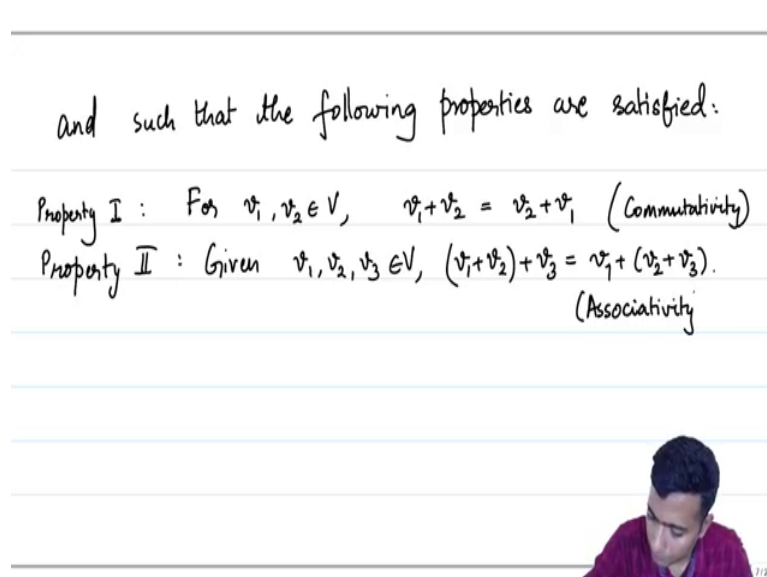 and such that the following properties are satisfied:
Property I : For v₁, v₂ ∈ V, v₁+v₂ = v₂+v₁ (Commutativity)
Property II : Given v₁, v₂, v₃ ∈V, (v₁+v₂)+v₃ = v₁+(v₂+v₃).
(Associativity